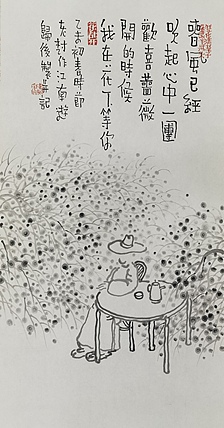 春風已經
吹起心中一團
歡喜薔薇
開的時候
我在花下等你
乙未初春時節
作江南遊
歸後製并記